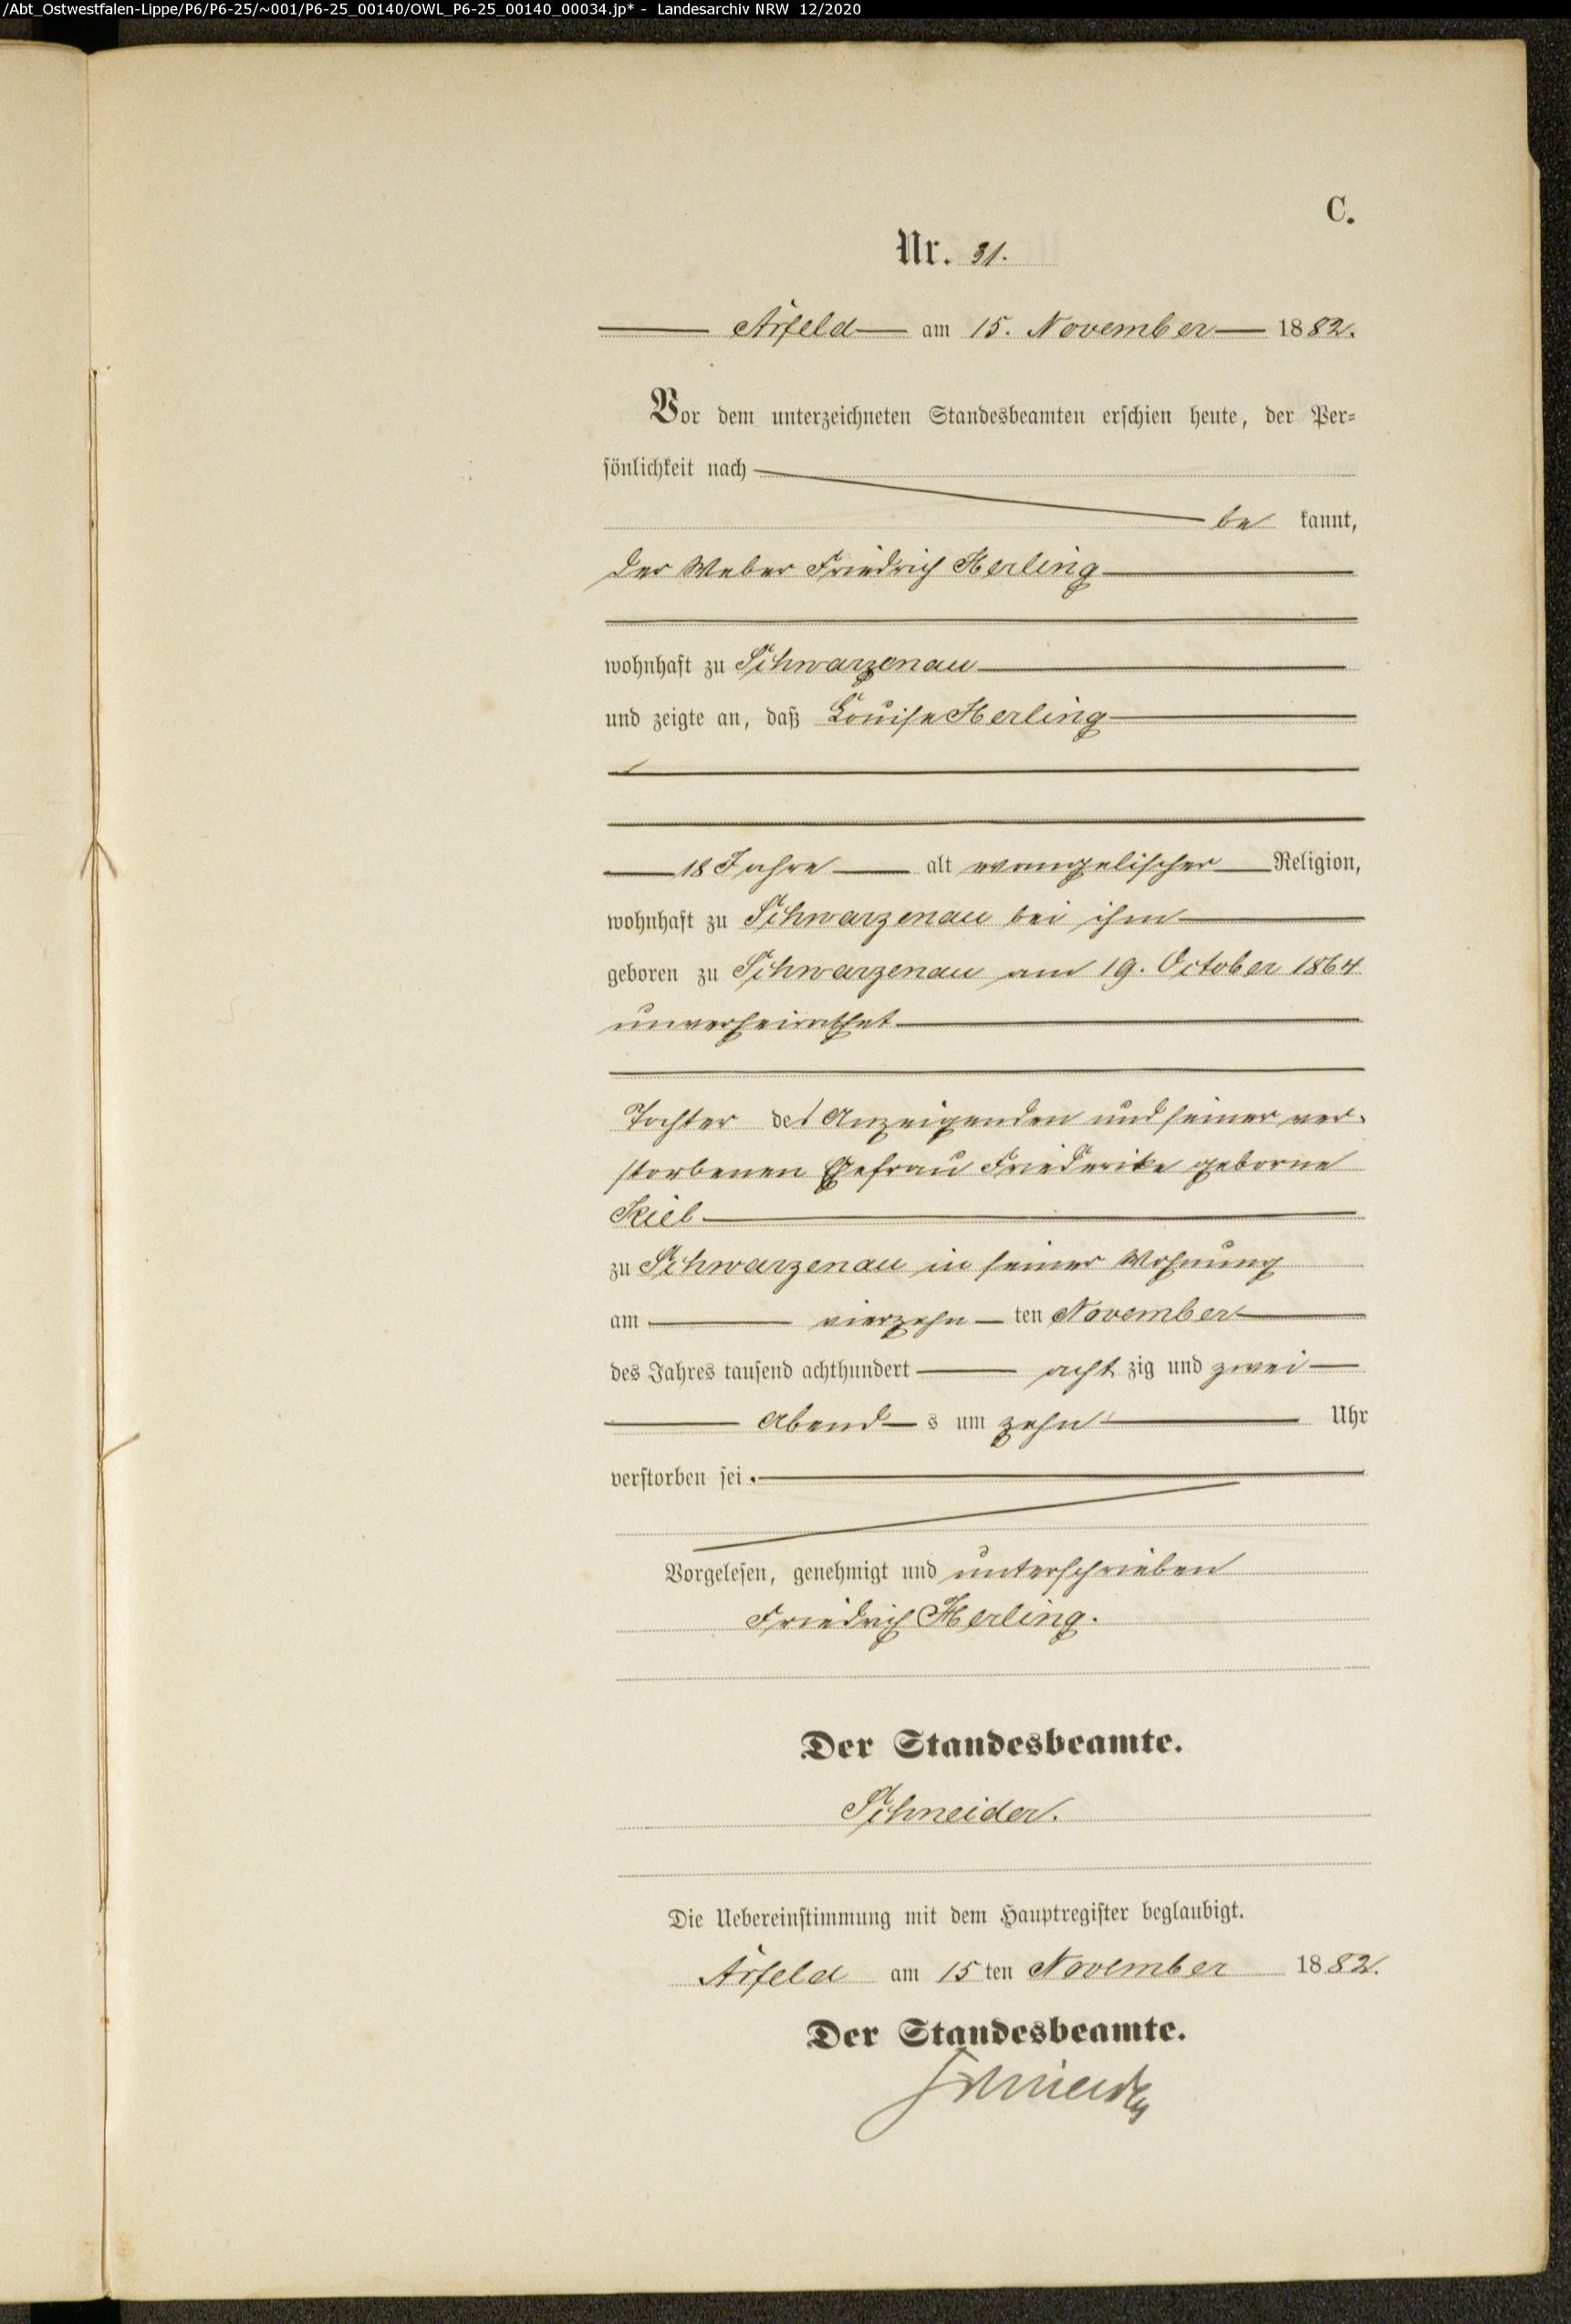 /Abt_Ostwestfalen-Lippe/P6/P6-25/~001/P6-25_00140/OWL_P6-25_00140_00034.jp* - Landesarchiv NRW 12/2020
C.
Nr. 31.
Arfeld am 15. November 1882.
Vor dem unterzeichneten Standesbeamten erschien heute, der Per-
sönlichkeit nach
be kannt,
der Weber Friedrich Herling
wohnhaft zu Schwarzenau
und zeigte an, daß Louise Herling
18 Jahre alt evangelischer Religion,
wohnhaft zu Schwarzenau bei ihm
geboren zu Schwarzenau am 19. October 1864
unverheirathet
Tochter des Anzeigenden und seiner ver-
storbenen Ehefrau Friederike geborne
Kiel
zu Schwarzenau in seiner Wohnung
am vierzehn ten November
des Jahres tausend achthundert acht zig und zwei
Abend s um zehn Uhr
verstorben sei.
Vorgelesen, genehmigt und unterschrieben
Friedrich Herling.
Der Standesbeamte.
Schneider.
Die Uebereinstimmung mit dem Hauptregister beglaubigt.
Arfeld am 15 ten November 1882.
Der Standesbeamte.
Schneider